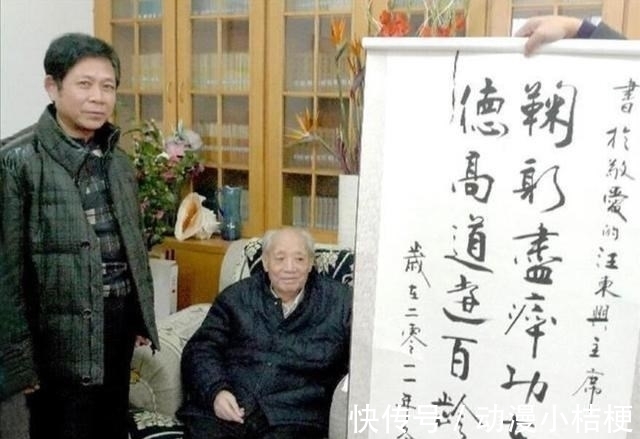 書於敬愛的汪東興主席
鞠躬盡瘁功
德高道遠百齡
歲在二零一一年
快传号/动漫小桔梗